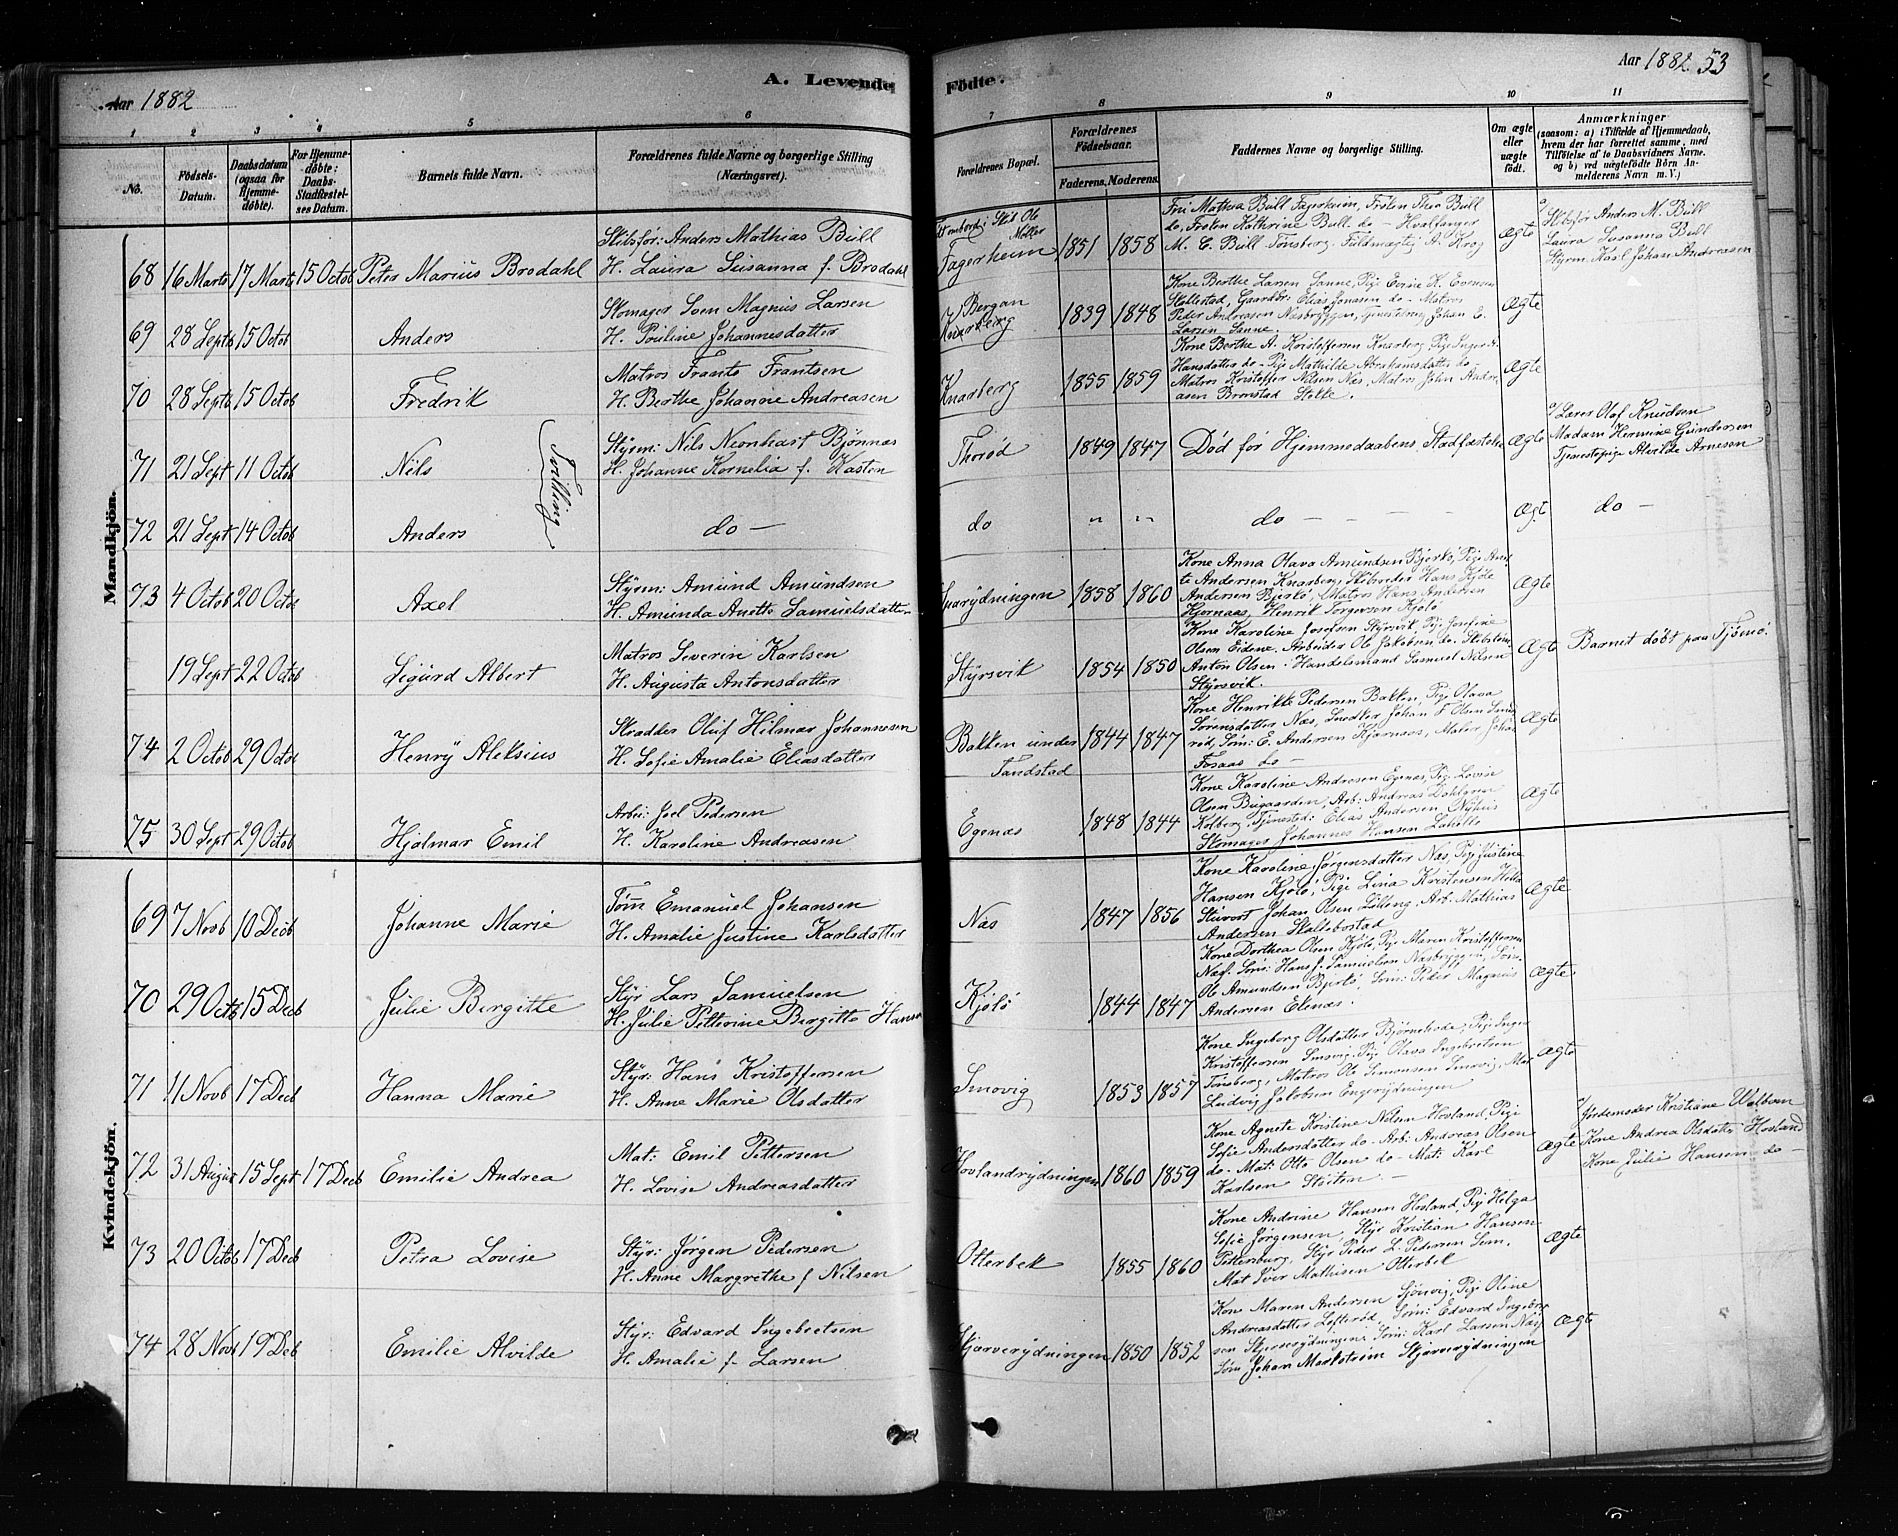 Aar 1882
A. Levende
Födte.
Aar 1882
53
1 2 3 4 5 6 7 8 9 10 11
No.
Födsels-Datum.
Daabsdatum (ogsaa for Hjemme-döbte).
For Hjemme-döbte: Daabs-Stadfæstelses Datum.
Barnets fulde Navn.
Forældrenes fulde Navne og borgerlige Stilling (Næringsvei).
Forældrenes Bopæl.
Forældrenes Födselsaar.
Faderens. Moderens.
Faddernes Navne og borgerlige Stilling.
Om ægte eller uægte födt.
Anmærkninger
(saasom: a) i Tilfælde af Hjemmedaab, hvem der har forrettet samme, med Tilföielse af to Daabsvidners Navne, og b) ved uægtefödte Börn Anmelderens Navn m. V.)
Mandkjön.
68 16 Marts 17 Marts 15 Octob Peter Marius Brodahl
Skibsfør: Anders Mathias Bull
H. Laura Susanna f. Brodahl
Fagerheim 1851 1858
Frk Mathea Bull Fagerheim, Frøken Thea Bull
do, Frøken Kathrine Bull do - Hvalfanger
M. C. Bull Tønsberg, Fuldmægtig A. Krog
Ægte
Skibsfør Anders M. Bull
Laura Susanna Bull
Styrm. Karl Johan Andreasen
69 28 Septb 15 Octob Anders
Skomager Sven Magnus Larsen
H. Pouline Johannesdatter
Bergan
Knarberg 1839 1848
Kone Berthe Larsen Sanne, Pige Evine K. Evensen
Stallestad, Gaardbr: Elias Jonassen do - Matros
Peder Andreasen Næsbryggen, Johan E.
Larsen Sanne.
Ægte
70 28 Septb 15 Octob Fredrik
Matros Frants Frantsen
H. Berthe Johanne Andreasen
Knarberg 1855 1859
Kone Berthe A. Kristoffersen Knarberg, Pige Inger A.
Hansdatter do - Pige Mathilde Abrahamsdatter do
Matros Kristoffer Nilsen Næs, Matros John Andreasen
Bronstad Stokke.
Ægte
71 21 Sept 11 Octob Nils
Tvilling
Styrm: Nils Neonhart Bjønnes
H. Johanne Kornelia f. Kasten
Thorød 1849 1847
Død før Hjemmedaabens Stadfæstelse
Ægte
Lærer Olaf Knudsen
Madam Hermine Gundersen
Tjenestepige Alvilde Arnesen
72 21 Sept 14 Octob Anders
do -
do " " do - - - - Ægt do -
73 4 Octob 20 Octob Axel
Styrm: Amund Amundsen
H. Amunda Anette Samuelsdatter
1858 1860
Kone Anna Olava Amundsen Bjerkø, Pige
Andersen Knarberg, Hans Kjøle
Andersen Bjerkø, Matros Hans Andersen
Kjørnaas, Henrik Torgersen Kjøle
Ægte
19 Sept 22 Octob Sigurd Albert
Matros Severin Karlsen
H. Augusta Antonsdatter
Styrsvik 1854 1850
Kone Karoline Josefsen Styrsvik Pige Josefine
Olsen Eidene. Arbeider Ole Jakobsen do. Skibstøm:
Anton Olsen. Handelsmand Samuel Nilsen
Styrsvik.
Ægte
Barnet døbt paa Tjømø.
74 2 Octob 29 Octob Henry Aleksius
Skrædder Oluf Hilmar Johannesen
H. Sofie Amalie Eliasdatter
Bakken under
Tandstad 1844 1847
Kone Henrikke Pedersen Bakken, Pige Olava
Sørensdatter Næs, Snedker Johan F Olsen
Søm: E. Andersen Kjærnaas, Maler Johan
Fosaas do -
Ægte
75 30 Sept 29 Octob Hjalmar Emil
Arbei: Joel Pedersen
H. Karoline Andreasen
Egenæs 1848 1844
Kone Karoline Andresen Egenæs, Pige Lovise
Olsen Bugaarden, Arb: Andreas Dahlgren
Kolberg, Tjenestd: Elias Andersen Nyhus
Skomager Johannes Hansen
Ægte
Kvindekjön.
69 7 Novb 10 Decb Johanne Marie
Tømm Emanuel Johansen
H. Amalie Justine Karlsdatter
Næs 1847 1856
Kone Karoline Jørgensdatter Næs, Pige Justine
Hansen Kjøle, Pige Lina Kristensen
Stuvort Johan Olsen Arb. Mathias
Andersen Skallebostad
Ægte
70 29 Octb 15 Decb Julie Birgitte
Styr Lars Samuelsen
H. Julie Petterine Birgitte Hansen
Kjølø 1844 1847
Kone Dorthea Olsen Kjøle, Pige Maren Kristoffersen
Næs. Søm: Hans J. Samuelsen Næsbryggen, Søm.
Ole Amundsen Bjerkø, Søm: Peder Magnus
Andersen Ekenæs.
Ægte.
71 11 Novb 17 Decb Hanna Marie
Styr: Hans Kristoffersen
H. Anne Marie Olsdatter
Smovig 1853 1857
Kone Ingeborg Olsdatter Pige Inger
Kristoffersen Smovig. Pige Olava Ingebretsen
Tønsberg, Matros Ole Simonsen Smovig, Mat
Ludvig Jakobsen Engrydningen
Ægte
72 31 August 15 Sept 17 Decb Emilie Andrea
Mat: Emil Pettersen
H. Lovise Andreasdatter
Hovlandrydningen 1860 1859
Kone Agnete Kristine Nilsen Hovland, Pige
Sofie Andersdatter do - Arb: Andreas Olsen
do - Mat: Otto Olsen do - Mat: Karl
Karlsen
Ægte
Jordemoder Kristiane Wølborn
Kone Andrea Olsdatter Hovland
Kone Julie Hansen do -
73 20 Octob 17 Decb Petra Lovise
Styr: Jørgen Pedersen
H. Anne Margrethe f Nilsen
Otterbek 1855 1860
Kone Andrine Hansen Hovland, Pige Helga
Sofie Jørgensen, Styr Kristian Hansen
Petersburg, Styr Peder L. Pedersen Sem.
Mat Iver Mathisen Otterbek
Ægte
74 28 Novb 19 Deb Emilie Alvilde
Styr: Edvard Ingebretsen
H. Amalie f. Larsen
Skjærverydningen 1850 1852
Kone Maren Andersen Sjøvig, Pige Oline
Andreasdatter Lofterød, Søm: Edvard Ingebretsen
Skjerverydningen, Søm: Karl Larsen Næs
Søm Johan Markstrøm Skjærverydningen
Ægte